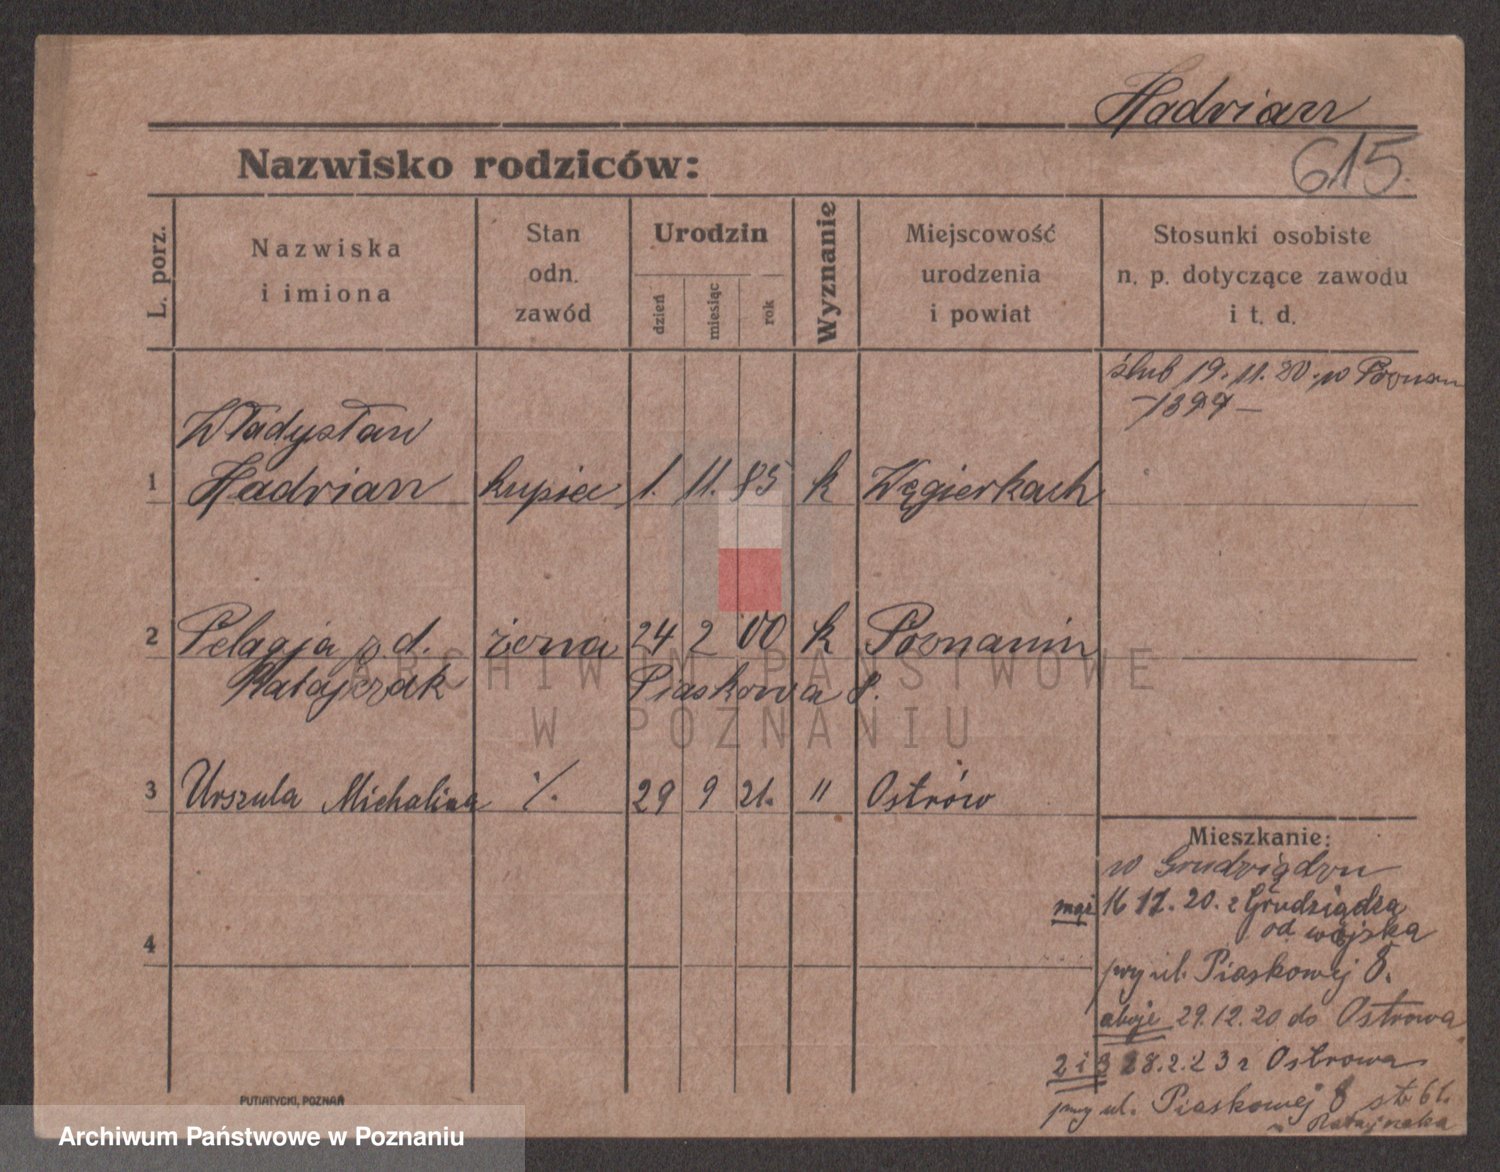 Hadrian
Nazwisko rodziców:
615.
L. porz.
Nazwiska
i imiona
Stan
odn.
zawód
Urodzin
dzień
miesiąc
rok
Wyznanie
Miejscowość
urodzenia
i powiat
Stosunki osobiste
n. p. dotyczące zawodu
i t. d.
ślub 19.11.20. w Poznan
-1399-
Władysław
1 Hadrian kupiec 1. 11. 85 k Węgierkach
2 Pelagja z d. żona 24 2 00 k Poznaniu
Ratajczak Piaskowa 8.
ARCHIWUM PAŃSTWOWE
W POZNANIU
3 Urszula Michalina ·/. 29 9 21. " Ostrów
Mieszkanie:
w Grudziądzu
mąż 16 12. 20. z Grudziądza
od wojska
przy ul. Piaskowej 8.
oboje 29.12.20 do Ostrowa
4
2 i 3 28.2.23 z Ostrowa
przy ul. Piaskowej 8 st. 61.
Ratajczaka
PUTIATYCKI, POZNAŃ
Archiwum Państwowe w Poznaniu